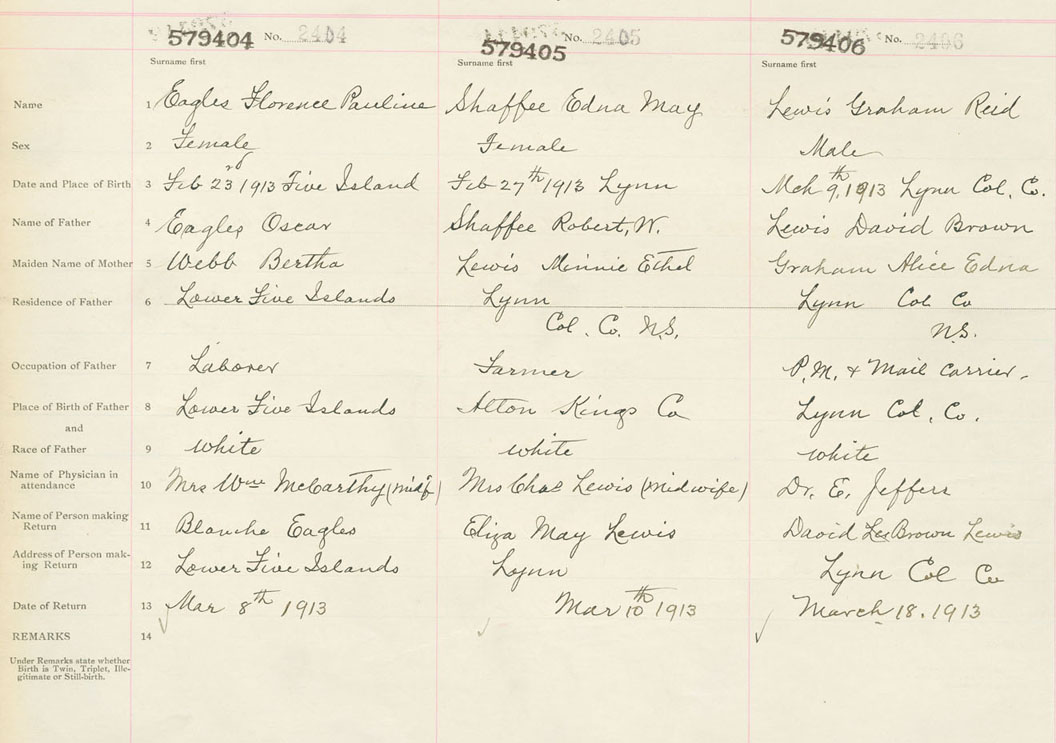 579404 No. 2404 579405 No. 2405 579406 No. 2406
Surname first Surname first Surname first
Name 1 Eagles Florence Pauline Shaffee Edna May Lewis Graham Reid
Sex 2 Female Female Male
Date and Place of Birth 3 Feb 23rd 1913 Five Island Feb 27th 1913 Lynn Mch 9th, 1913 Lynn Col. Co.
Name of Father 4 Eagles Oscar Shaffee Robert, W. Lewis David Brown
Maiden Name of Mother 5 Webb Bertha Lewis Minnie Ethel Graham Alice Edna
Residence of Father 6 Lower Five Islands Lynn Lynn Col Co
Col. Co. N.S. N.S.
Occupation of Father 7 Laborer Farmer P.M. & Mail Carrier.
Place of Birth of Father 8 Lower Five Islands Alton Kings Co Lynn Col. Co.
and
Race of Father 9 White White White
Name of Physician in
attendance 10 Mrs Wm McCarthy (midf) Mrs Chas Lewis (Midwife) Dr. E. Jeffers
Name of Person making
Return 11 Blanche Eagles Eliza May Lewis David Brown Lewis
Address of Person mak-
ing Return 12 Lower Five Islands Lynn Lynn Col Co
Date of Return 13 Mar 8th 1913 Mar 10th 1913 March 18. 1913
REMARKS 14
Under Remarks state whether
Birth is Twin, Triplet, Ille-
gitimate or Still-birth.